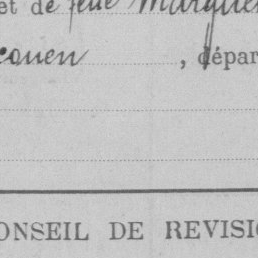 et de feue Marguer
couen, dépar
ONSEIL DE REVISIO